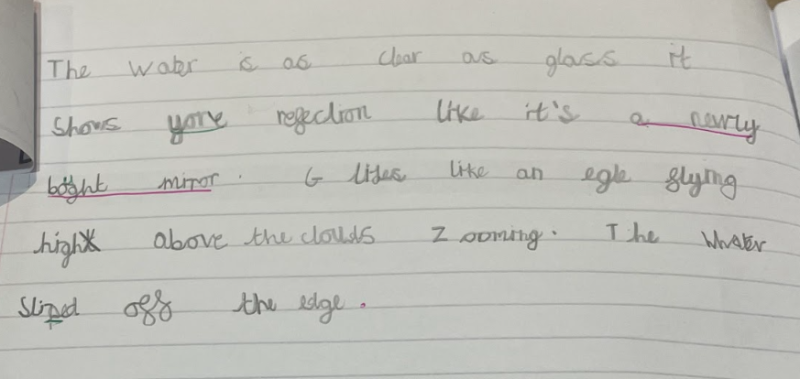 The water is as clear as glass it
shows yore reflection like it's a newly
bought mirror. Glides like an egle flying
high above the clouds Zooming. The Whater
sliped off the edge.